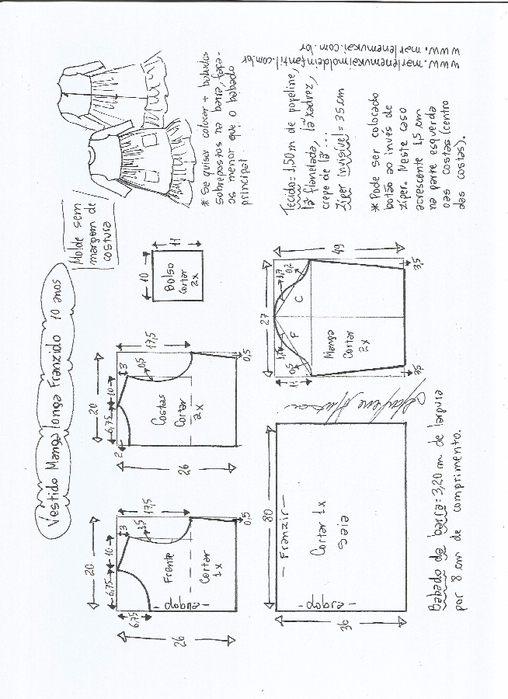 Vestido Manga longa Franzido 10 anos
Molde sem
margem de
costura
20
6,75
10
3
1,5
17,5
6,75
Frente
Cortar
1x
dobra
26
0,5
20
6,75
10
3
0,5
17,5
2
Costas
Cortar
2x
26
0,5
10
11
Bolso
Cortar
2x
* Se quiser colocar + babados
sobrepostos na barra faça-
os menor que o babado
principal
80
Franzir
Cortar 1x
Saia
dobra
36
27
11
F
C
Manga
Cortar
2x
49
3,5
3,5
Tecido= 1,50 m de popeline,
lã flanelada, lã xadrez,
crepe de lã...
Zíper invisível = 35 cm
* Pode ser colocado
botão ao invés de
zíper. Neste caso
acrescente 1,5 cm
na parte esquerda
das costas (centro
das costas).
Babado da barra= 3,20 m de largura
por 8 cm de comprimento.
www.marlenemukaimoldeinfantil.com.br
www.marlenemukai.com.br